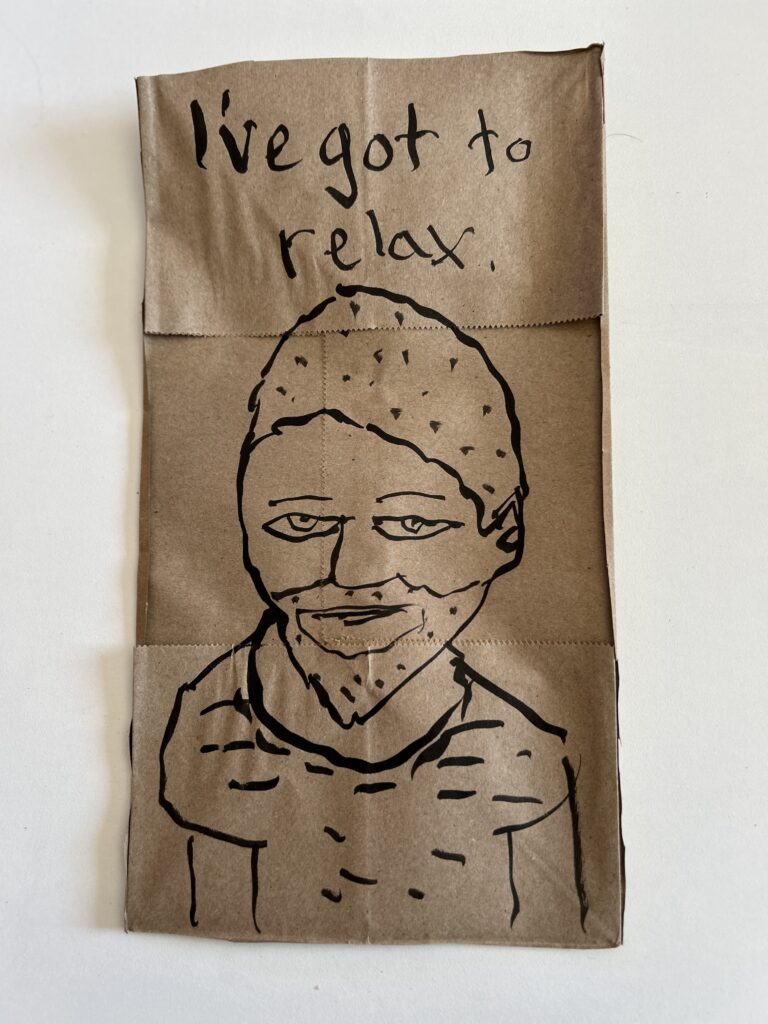 I've got to
relax.